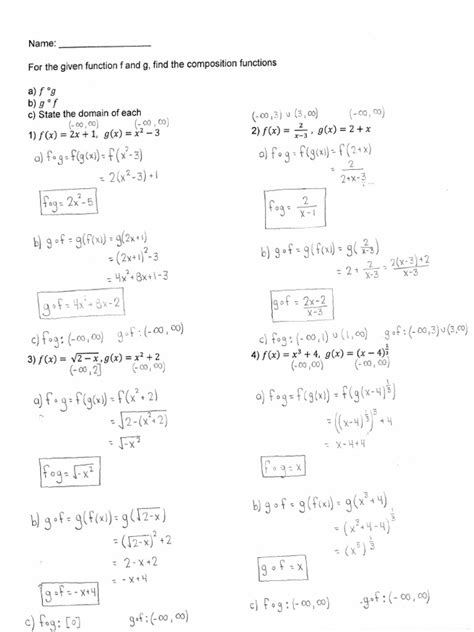 Name: ____________
For the given function f and g, find the composition functions
a) f ∘ g
b) g ∘ f
c) State the domain of each
(-∞,∞) (-∞,∞)
1) f(x) = 2x + 1, g(x) = x² − 3
a) f∘g = f(g(x)) = f(x²-3)
= 2(x²-3)+1
f∘g = 2x²-5
b) g∘f = g(f(x)) = g(2x+1)
= (2x+1)²-3
= 4x²+8x+1-3
g∘f = 4x²+8x-2
c) f∘g: (-∞,∞) g∘f: (-∞,∞)
(-∞,3) ∪ (3,∞) (-∞,∞)
2) f(x) = 2/(x−3), g(x) = 2 + x
a) f∘g = f(g(x)) = f(2+x)
= 2/(2+x-3)
f∘g = 2/(x-1)
b) g∘f = g(f(x)) = g(2/(x-3))
= 2 + 2/(x-3) = (2(x-3)+2)/(x-3)
g∘f = (2x-2)/(x-3)
c) f∘g: (-∞,1) ∪ (1,∞) g∘f: (-∞,3) ∪ (3,∞)
3) f(x) = √(2 − x), g(x) = x² + 2
(-∞,2] (-∞,∞)
a) f∘g = f(g(x)) = f(x²+2)
= √(2-(x²+2))
= √(-x²)
f∘g = √(-x²)
b) g∘f = g(f(x)) = g(√(2-x))
= (√(2-x))²+2
= 2-x+2
= -x+4
g∘f = -x+4
c) f∘g: [0] g∘f: (-∞,∞)
4) f(x) = x³ + 4, g(x) = (x − 4)^(1/3)
(-∞,∞) (-∞,∞)
a) f∘g = f(g(x)) = f(g(x-4)^(1/3)
= ((x-4)^(1/3))³+4
= x-4+4
f∘g = x
b) g∘f = g(f(x)) = g(x³+4)
= (x³+4-4)^(1/3)
= (x³)^(1/3)
g∘f = x
c) f∘g: (-∞,∞) g∘f: (-∞,∞)